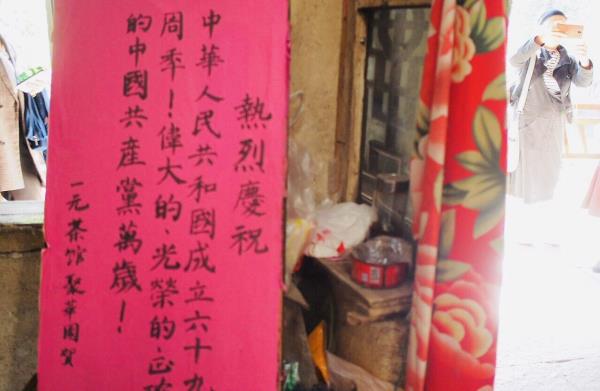 熱烈慶祝
中華人民共和國成立六十九
周季！偉大的、光榮的、正
的中國共產黨萬歲！
一元茶馆聚華園賀